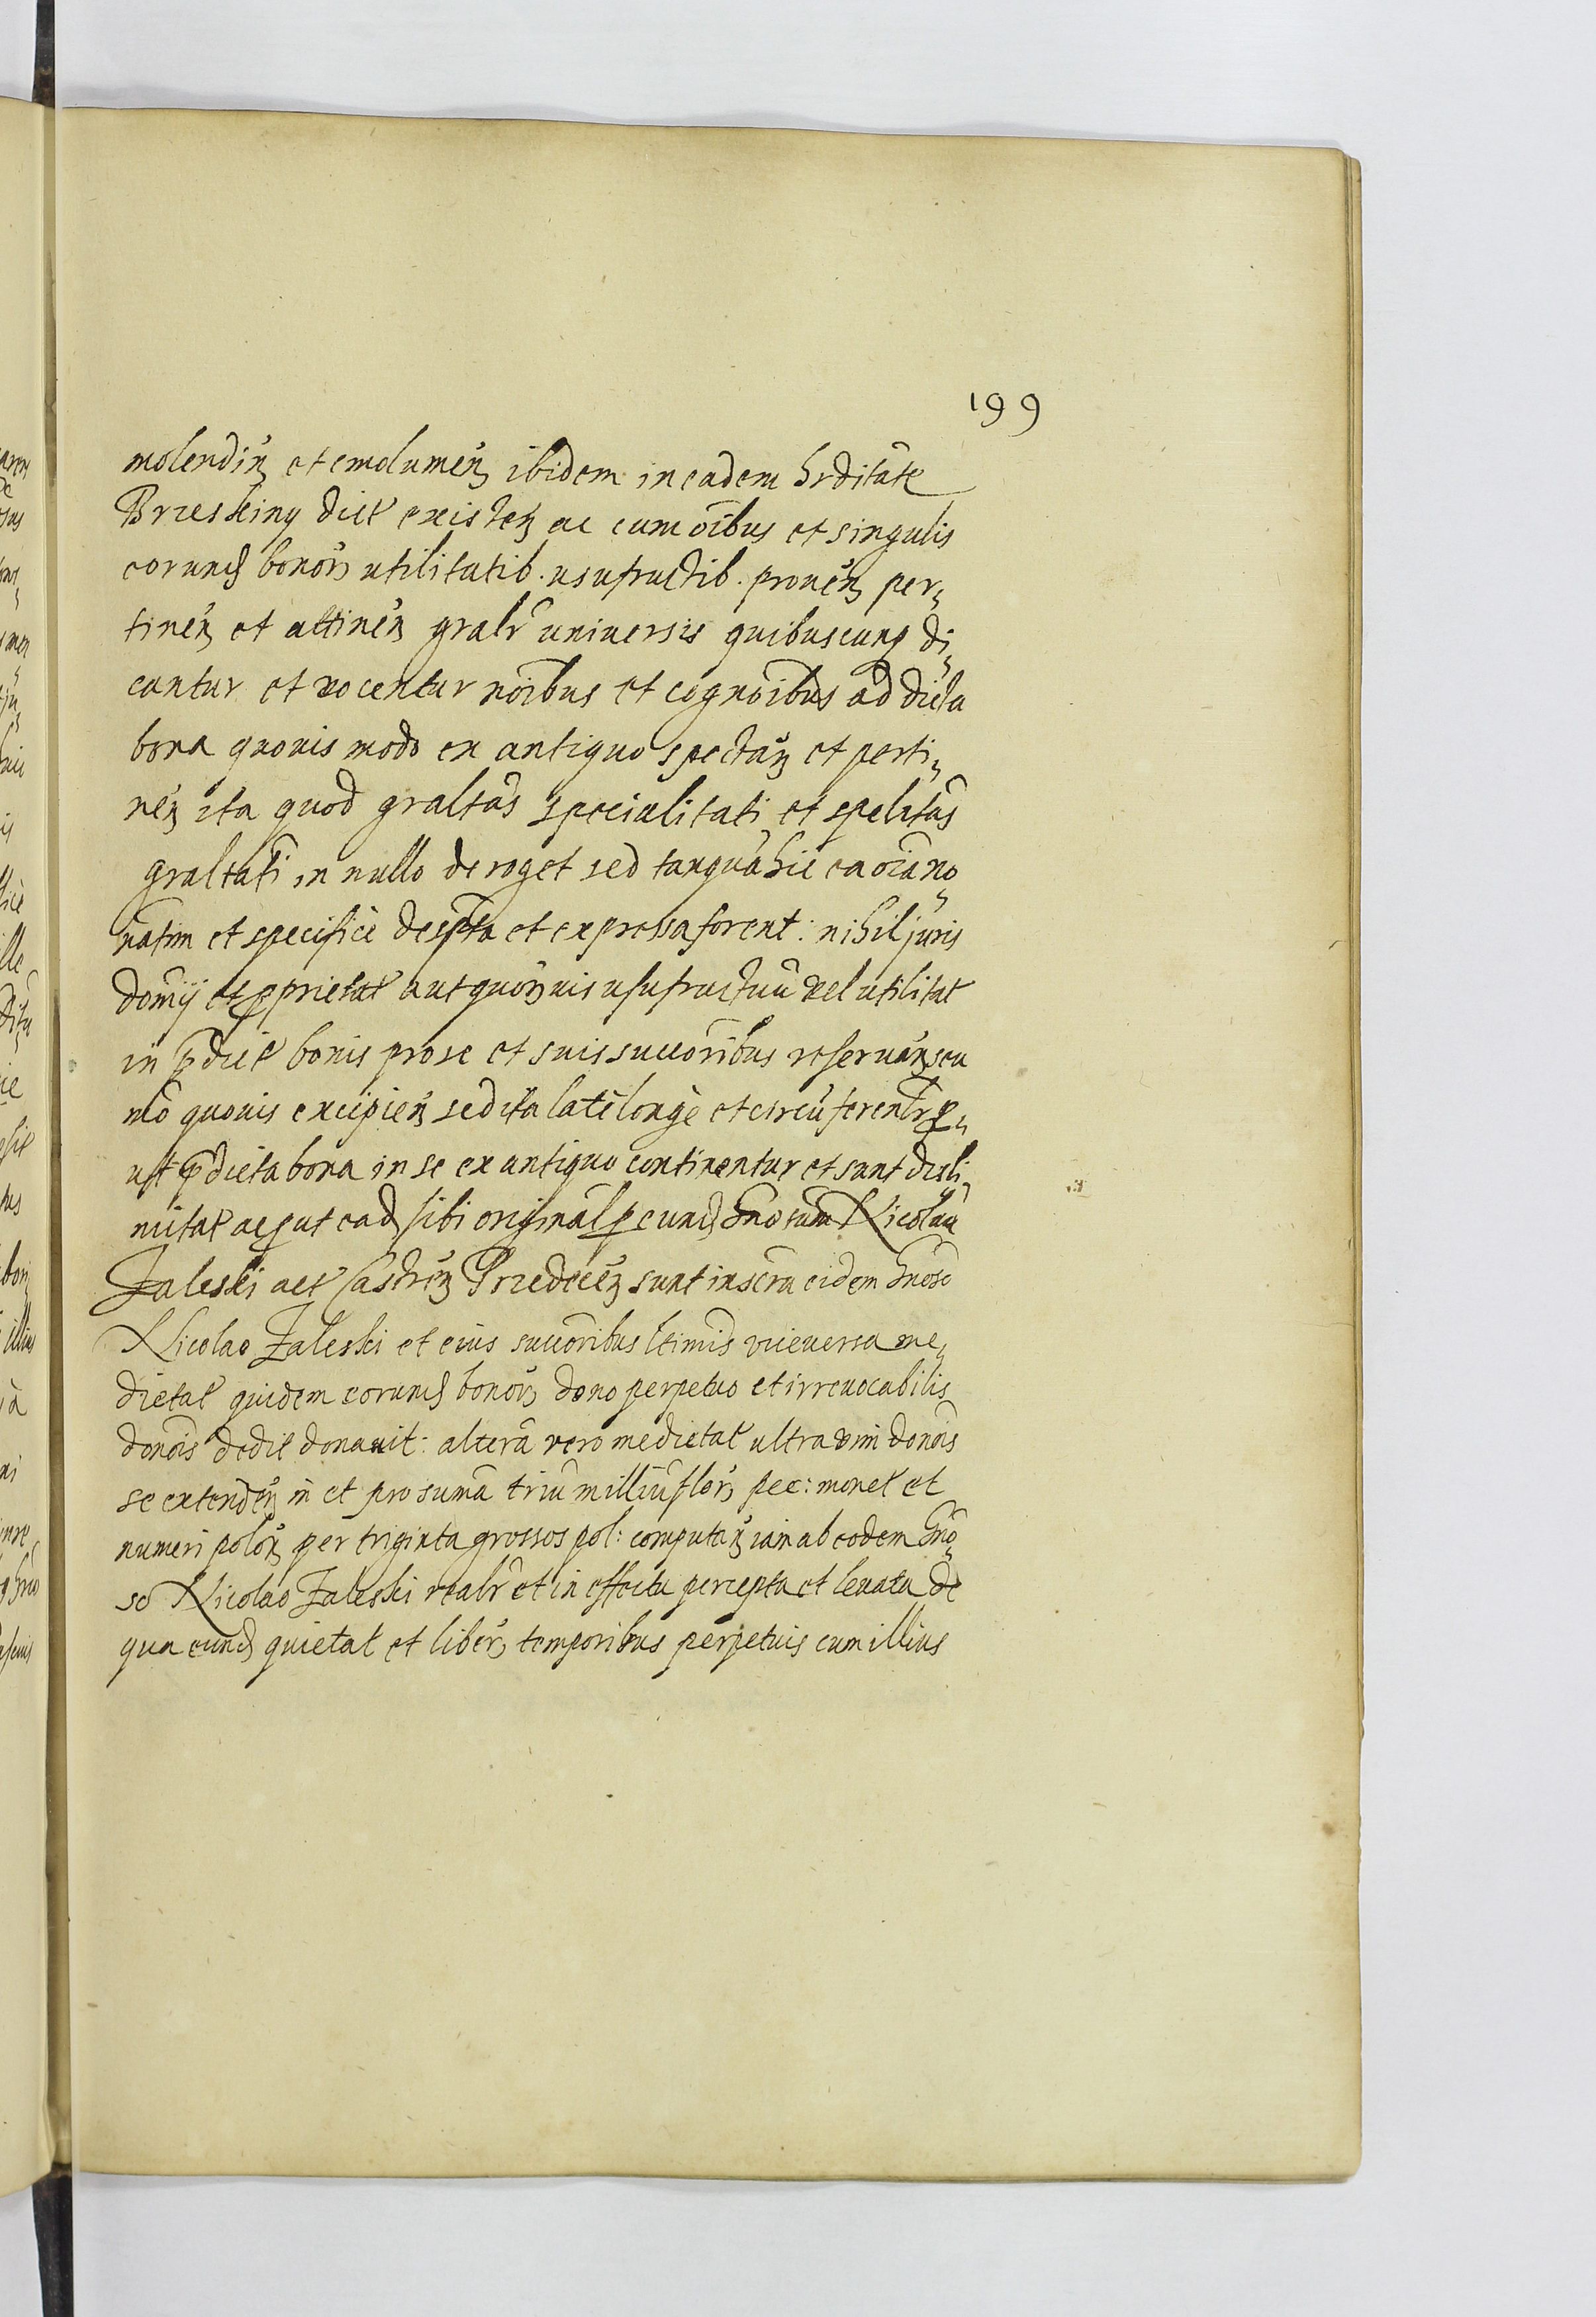 199
molendin̄ et emolumen̄ ibidem in eadem hrditate
Brzeskiny dict existen̄ ac cum oībus et singulis
eorund bonor̄ utilitatib. usufructib. prouen̄ per„
tinen̄ et attinen̄ gralr̄ universis quibuscunq̨ di„
cantur et vocentur noībus et cognoībus ad dicta
bona quouis modo ex antiquo spectan̄ et perti„
nen̄ ita quod graltas̄ specialitati et spelitas̄
graltati in nullo deroget sed tanquā hic ea oīa no„
natim et specificè descpta et expressa forent: nihil juris
domīj et pprietat aut quor̄uis usufructuū vel utilitat
in p̄dict bonis pro se et suis succoribus reseruan̄ seu
mō quouis excipien̄ sed ita latè longè et circūferentr p„
ut p̄dicta bona in se ex antiquo continentur et sunt disli„
mitat ac put ead sibi original p eund Gn̄osum Nicolaū
Zaleski act Castren̄ Przedecen̄ sunt inscra eidem Gnoso
Nicolao Zaleski et eius succoribus ltimis viceversa me„
dietat quidem eorund bonor̄ dono perpetuo et irreuocabilis
donois̄ dedit donauit: alterā vero medietat ultra vim donois̄
se extenden̄ in et pro sumā triū milliū flor̄ pec: monet et
numeri polon̄ per triginta grossos pol: computan̄ iam ab eodem Gno„
so Nicolao Zaleski realr̄ et in effectu percepta et leuata de
qua eund quietat et liber̄ temporibus perpetuis cum illius